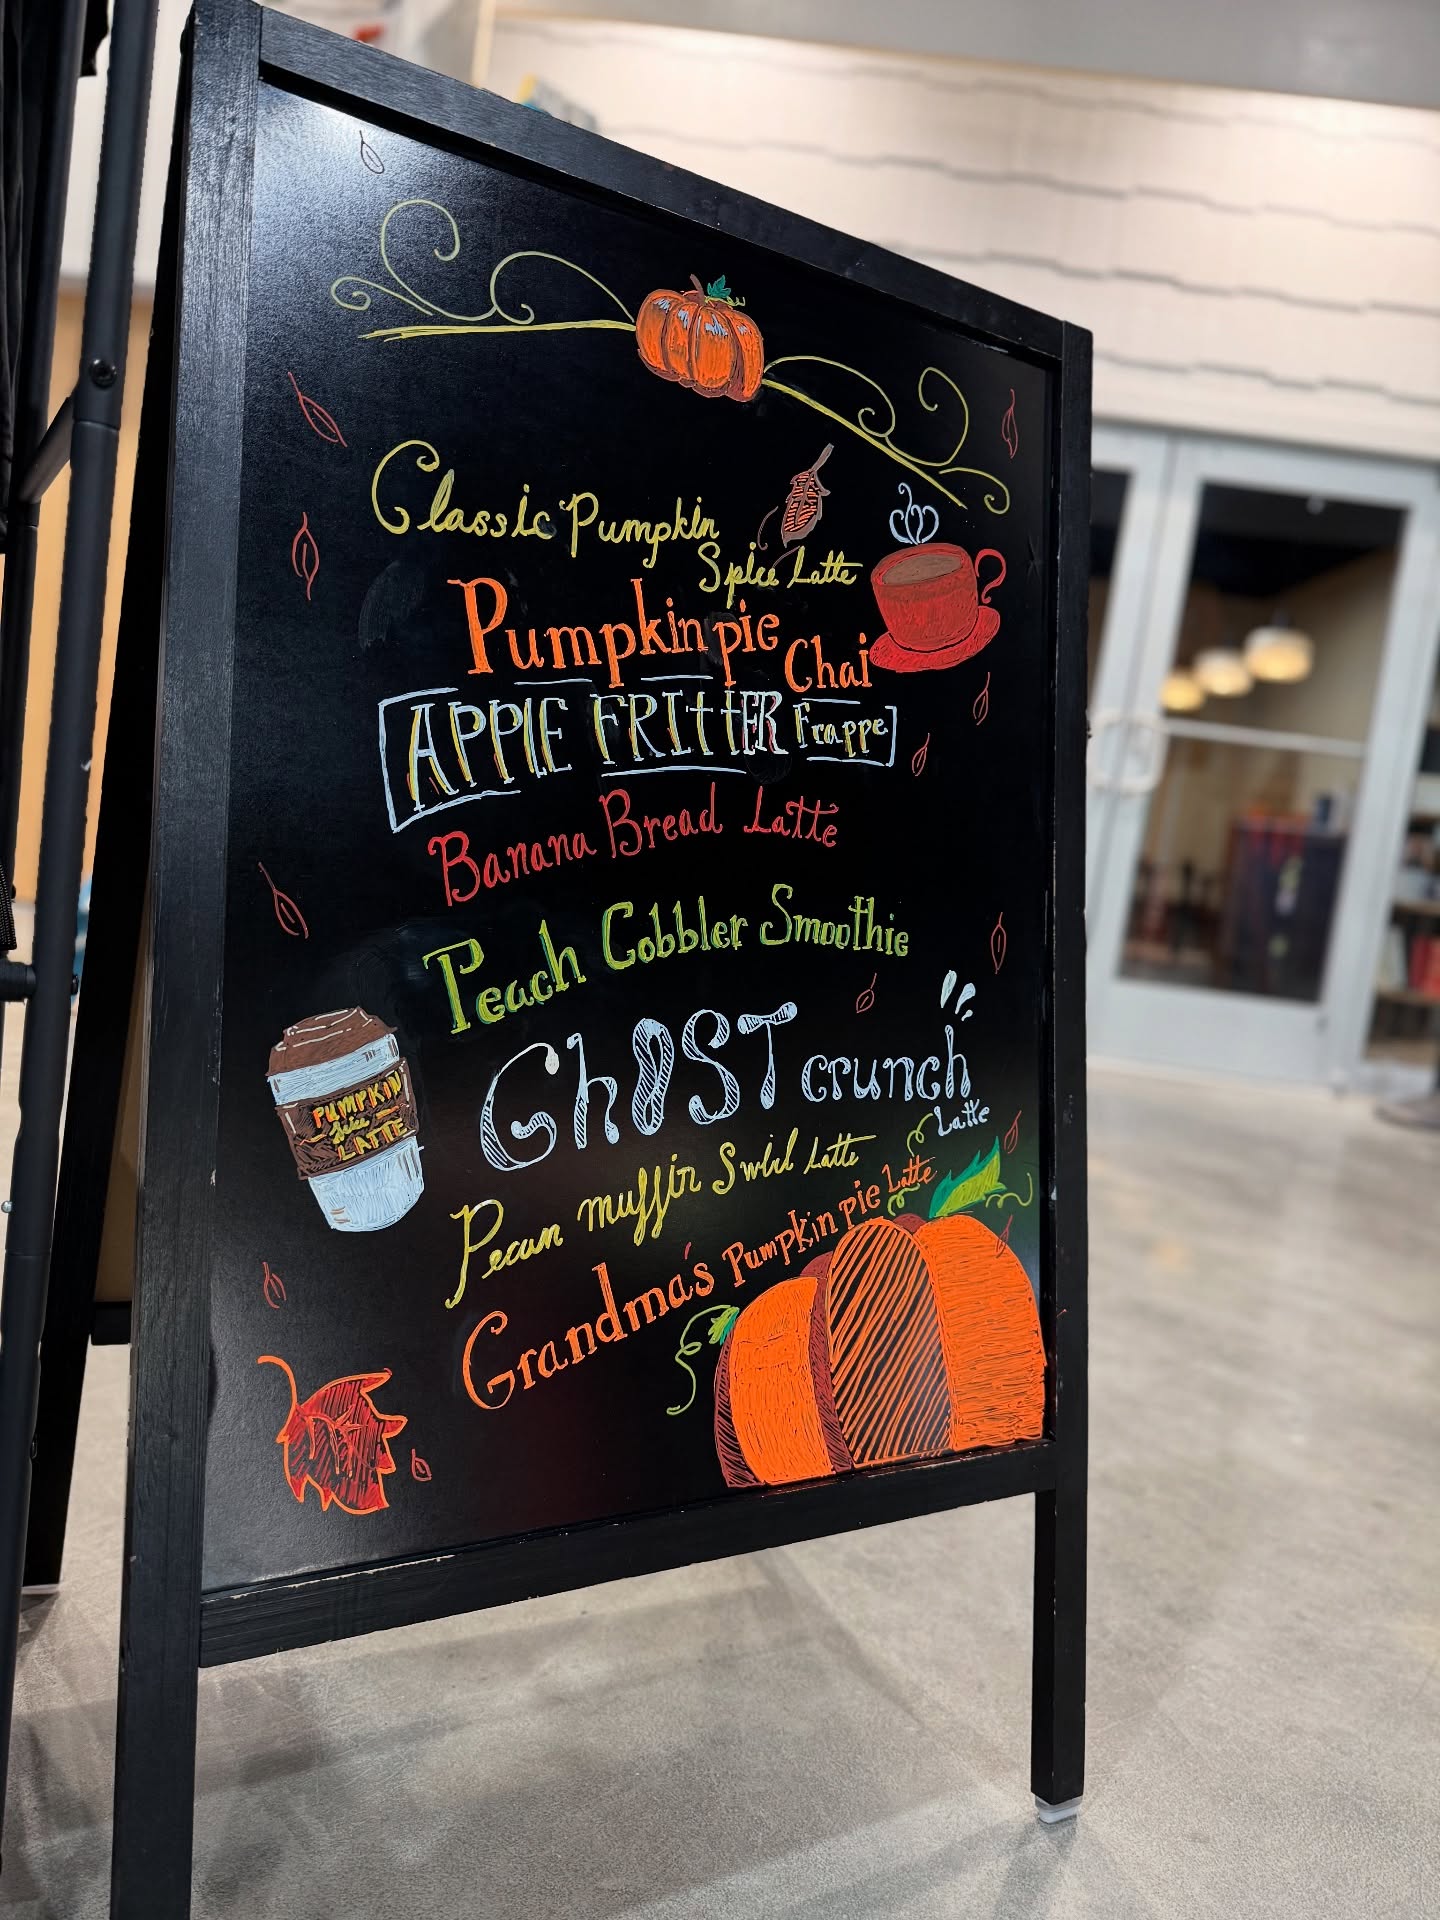 Classic Pumpkin
Spice Latte
Pumpkin pie
Chai
APPlE FRItTER Frappe
Banana Bread Latte
Peach Cobbler Smoothie
GhOST crunch
Latte
Pecan muffin Swirl Latte
Grandma's Pumpkin pie Latte
PUMPKIN
Spice
LATTE